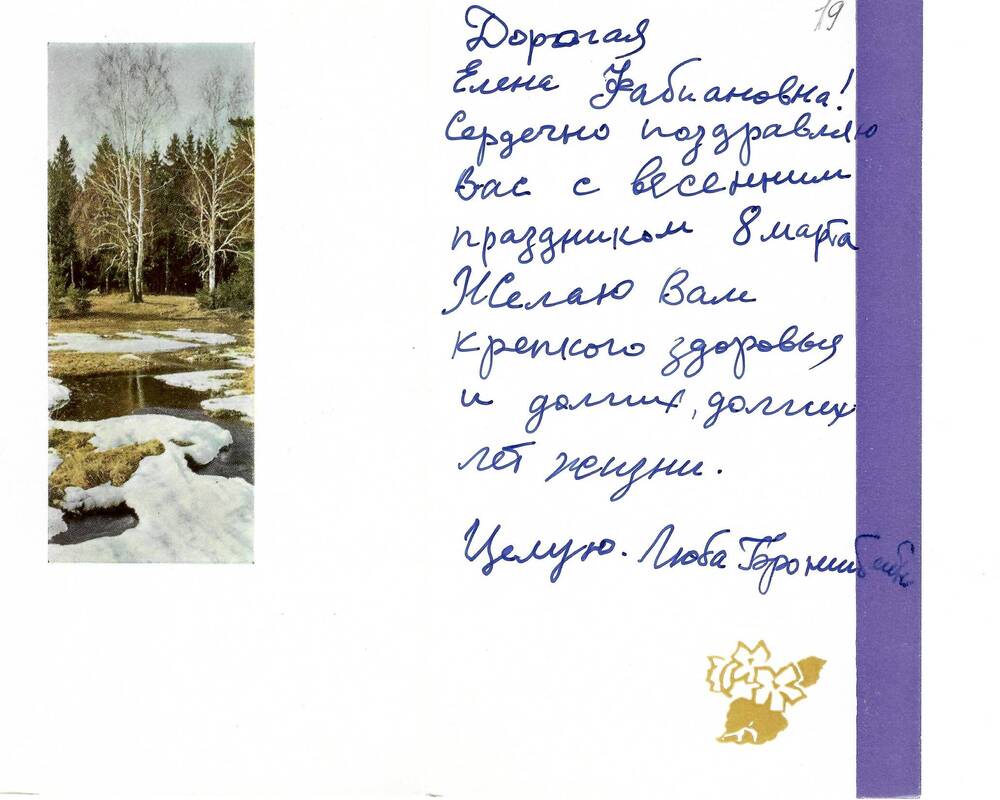 19
Дорогая
Елена Фабиановна!
Сердечно поздравляю
Вас с весенним
праздником 8 марта
Желаю Вам
крепкого здоровья
и долгих, долгих
лет жизни.
Целую. Люба